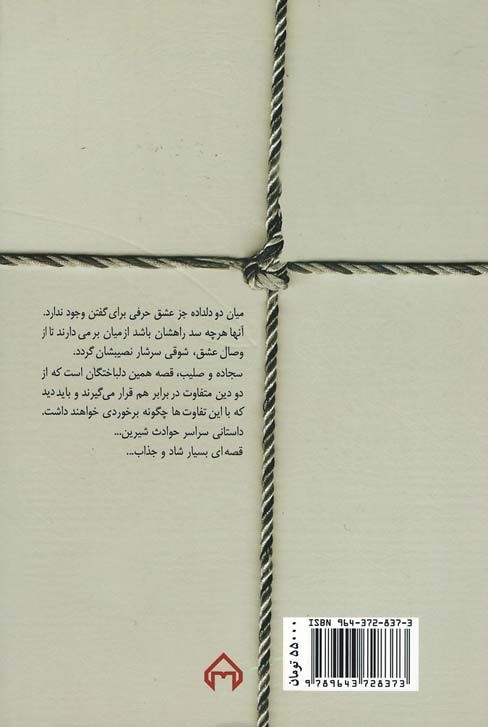 میان دو دلداده جز عشق حرفی برای گفتن وجود ندارد.
آنها هرچه سد راهشان باشد از میان بر می دارند تا از
وصال عشق، شوقی سرشار نصیبشان گردد.
سجاده و صلیب، قصه همین دلباختگان است که از
دو دین متفاوت در برابر هم قرار می‌گیرند و باید دید
که با این تفاوت ها چگونه برخوردی خواهند داشت.
داستانی سراسر حوادث شیرین...
قصه ای بسیار شاد و جذاب...
ISBN 964-372-837-3
9 789643 728373
۵۵۰۰۰ تومان